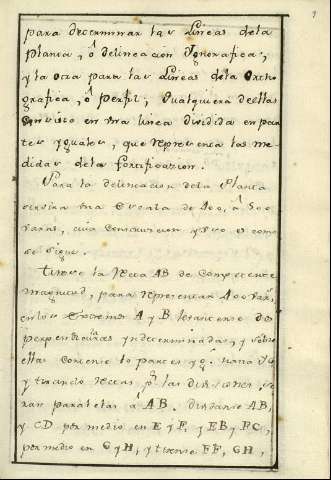 para determinar las Lineas dela
Planta, ô delineacion Ignografica,
y la otra para las Lineas dela Ortho
grafica, ô Perfil; Qualquiera dellas
consiste en una linea dividida en par
tes yguales, que representa las me
didas dela fortificazion.
Para la delineacion dela Planta
servira una Escala de 400, â 500
varas, cuia construccion y uso es como
se sigue.
Tirese la Recta AB de Competente
magnitud, para representar 400 varas,
en los Extremos A y B levantense dos
perpendiculares yndeterminadas, y sobre
ellas
y tirando rectas, pr. las divisiones, se
ran paralelas â AB. dividanse AB,
y CD por medio en E y F, y EB, y FC,
por medio en G y H, y tirense FF, GH,